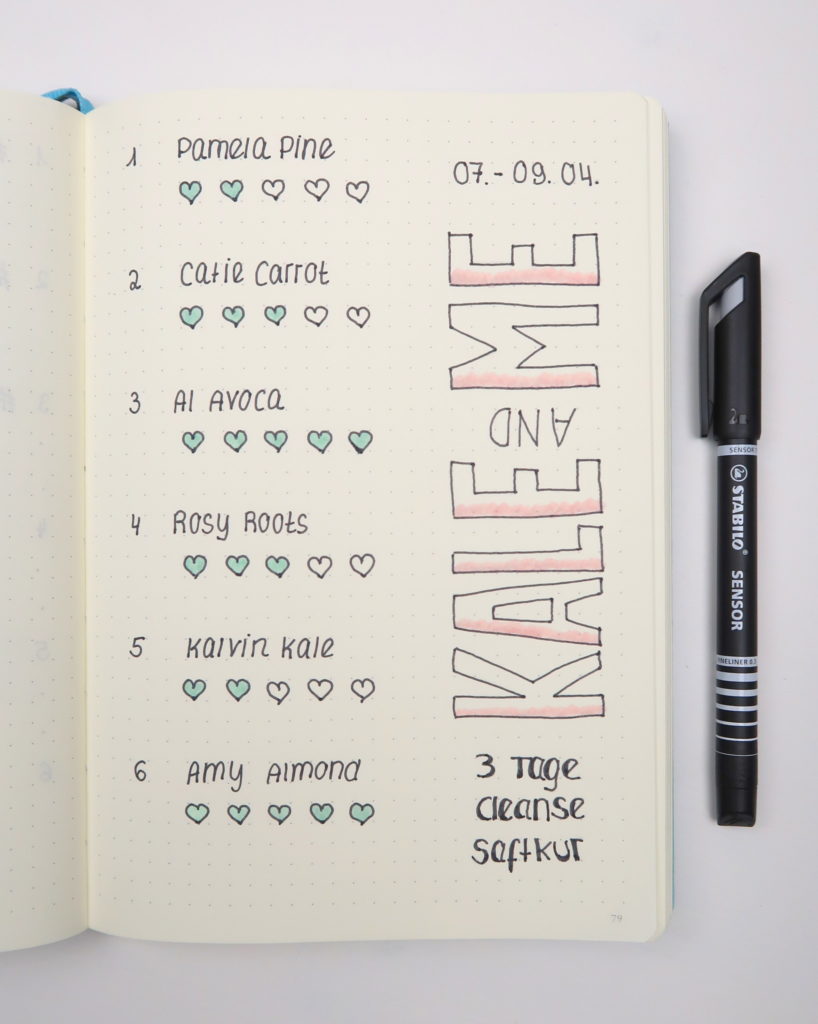 1 Pamela Pine
2 Catie Carrot
3 Al Avoca
4 Rosy Roots
5 Kalvin Kale
6 Amy Almond
07.-09.04.
KALE AND ME
3 Tage
Cleanse
Saftkur
79
SENSOR
STABILO® SENSOR
FINELINER 0.3